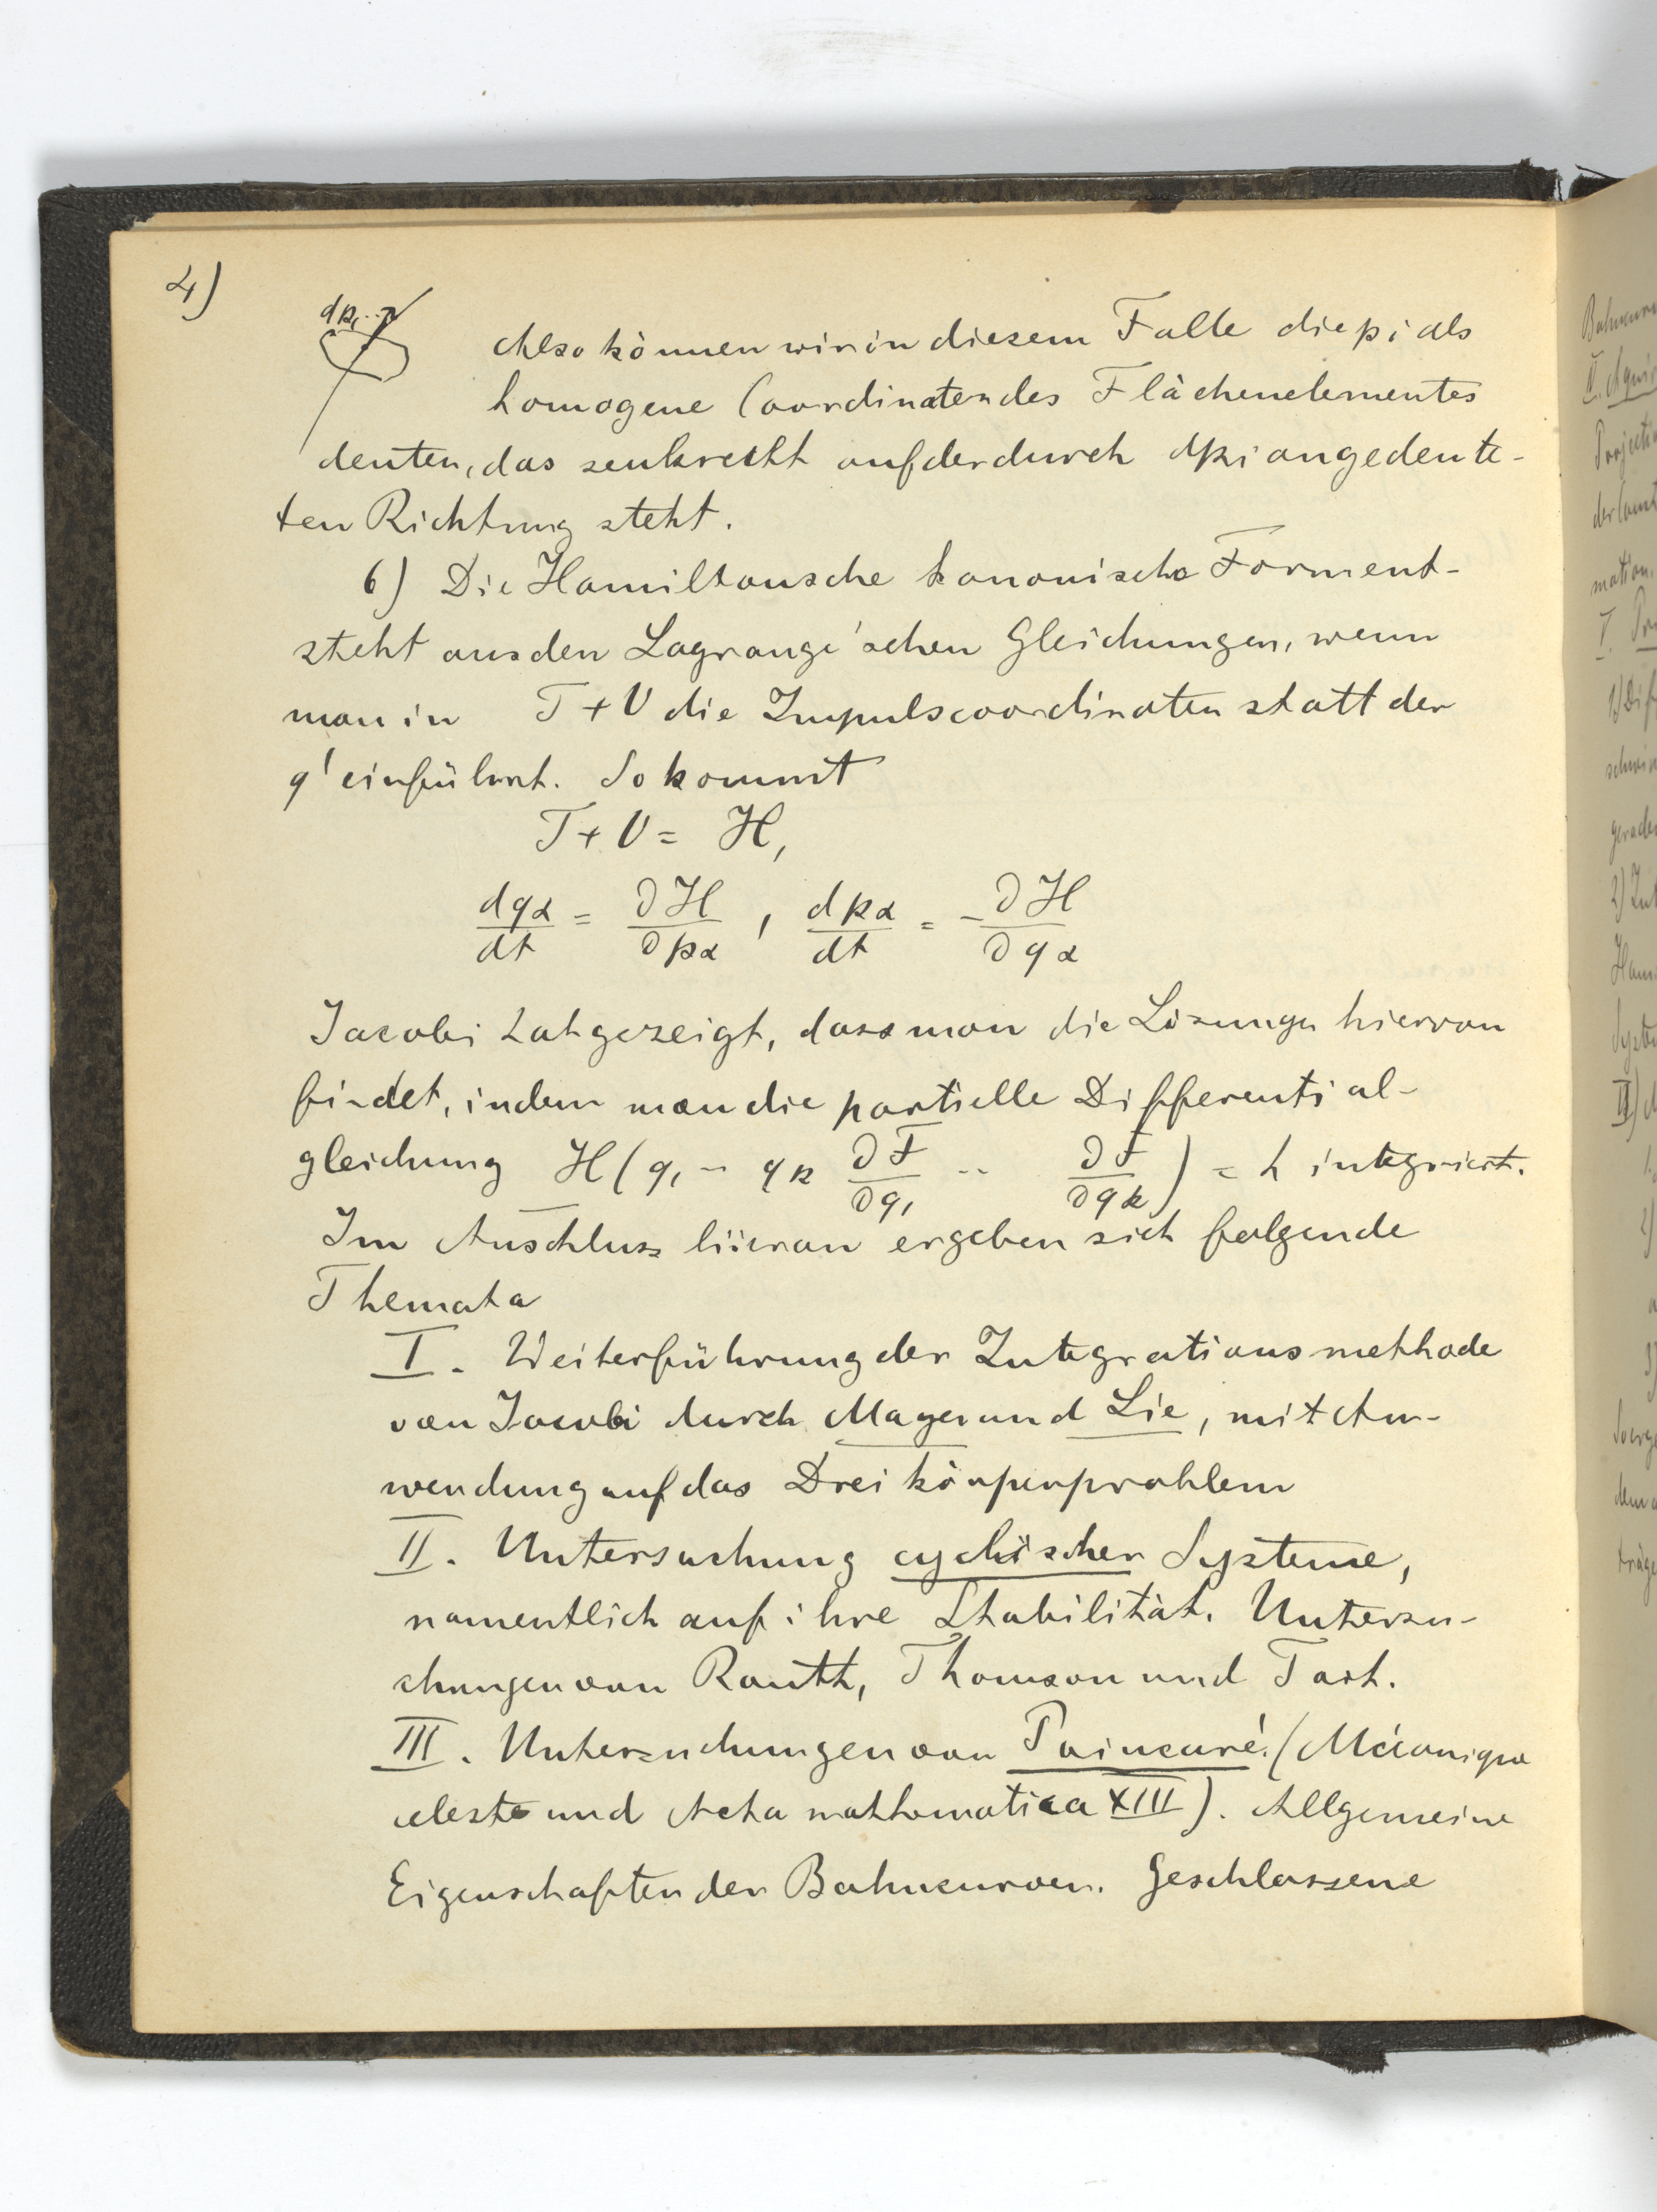 4)
dp₁...
Also können wir in diesem Falle die pi als
homogene Coordinaten des Flächenelementes
deuten, das senkrecht auf der durch dpi angedeute-
ten Richtung steht.
6) Die Hamiltonsche kanonische Form ent-
steht aus den Lagrange'schen Gleichungen, wenn
man in T + V die Impulscoordinaten statt der
q' einführt. So kommt
T + V = H,
dqα/dt = ∂H/∂pα , dpα/dt = -∂H/∂qα
Jacobi hat gezeigt, dass man die Lösungen hiervon
findet, indem man die partielle Differential-
gleichung H(q₁ - qk ∂F/∂q₁ .. ∂F/∂qk) = h integriert.
Im Anschluss hieran ergeben sich folgende
Themata
I. Weiterführung der Integrationsmethode
von Jacobi durch Mayer und Lie, mit An-
wendung auf das Dreikörperproblem
II. Untersuchung cyclischer Systeme,
namentlich auf ihre Stabilität. Untersu-
chungen von Routh, Thomson und Tait.
III. Untersuchungen von Poincaré. (Mécanique
celeste und Acta mathematica XIII). Allgemeine
Eigenschaften der Bahncurven. Geschlossene